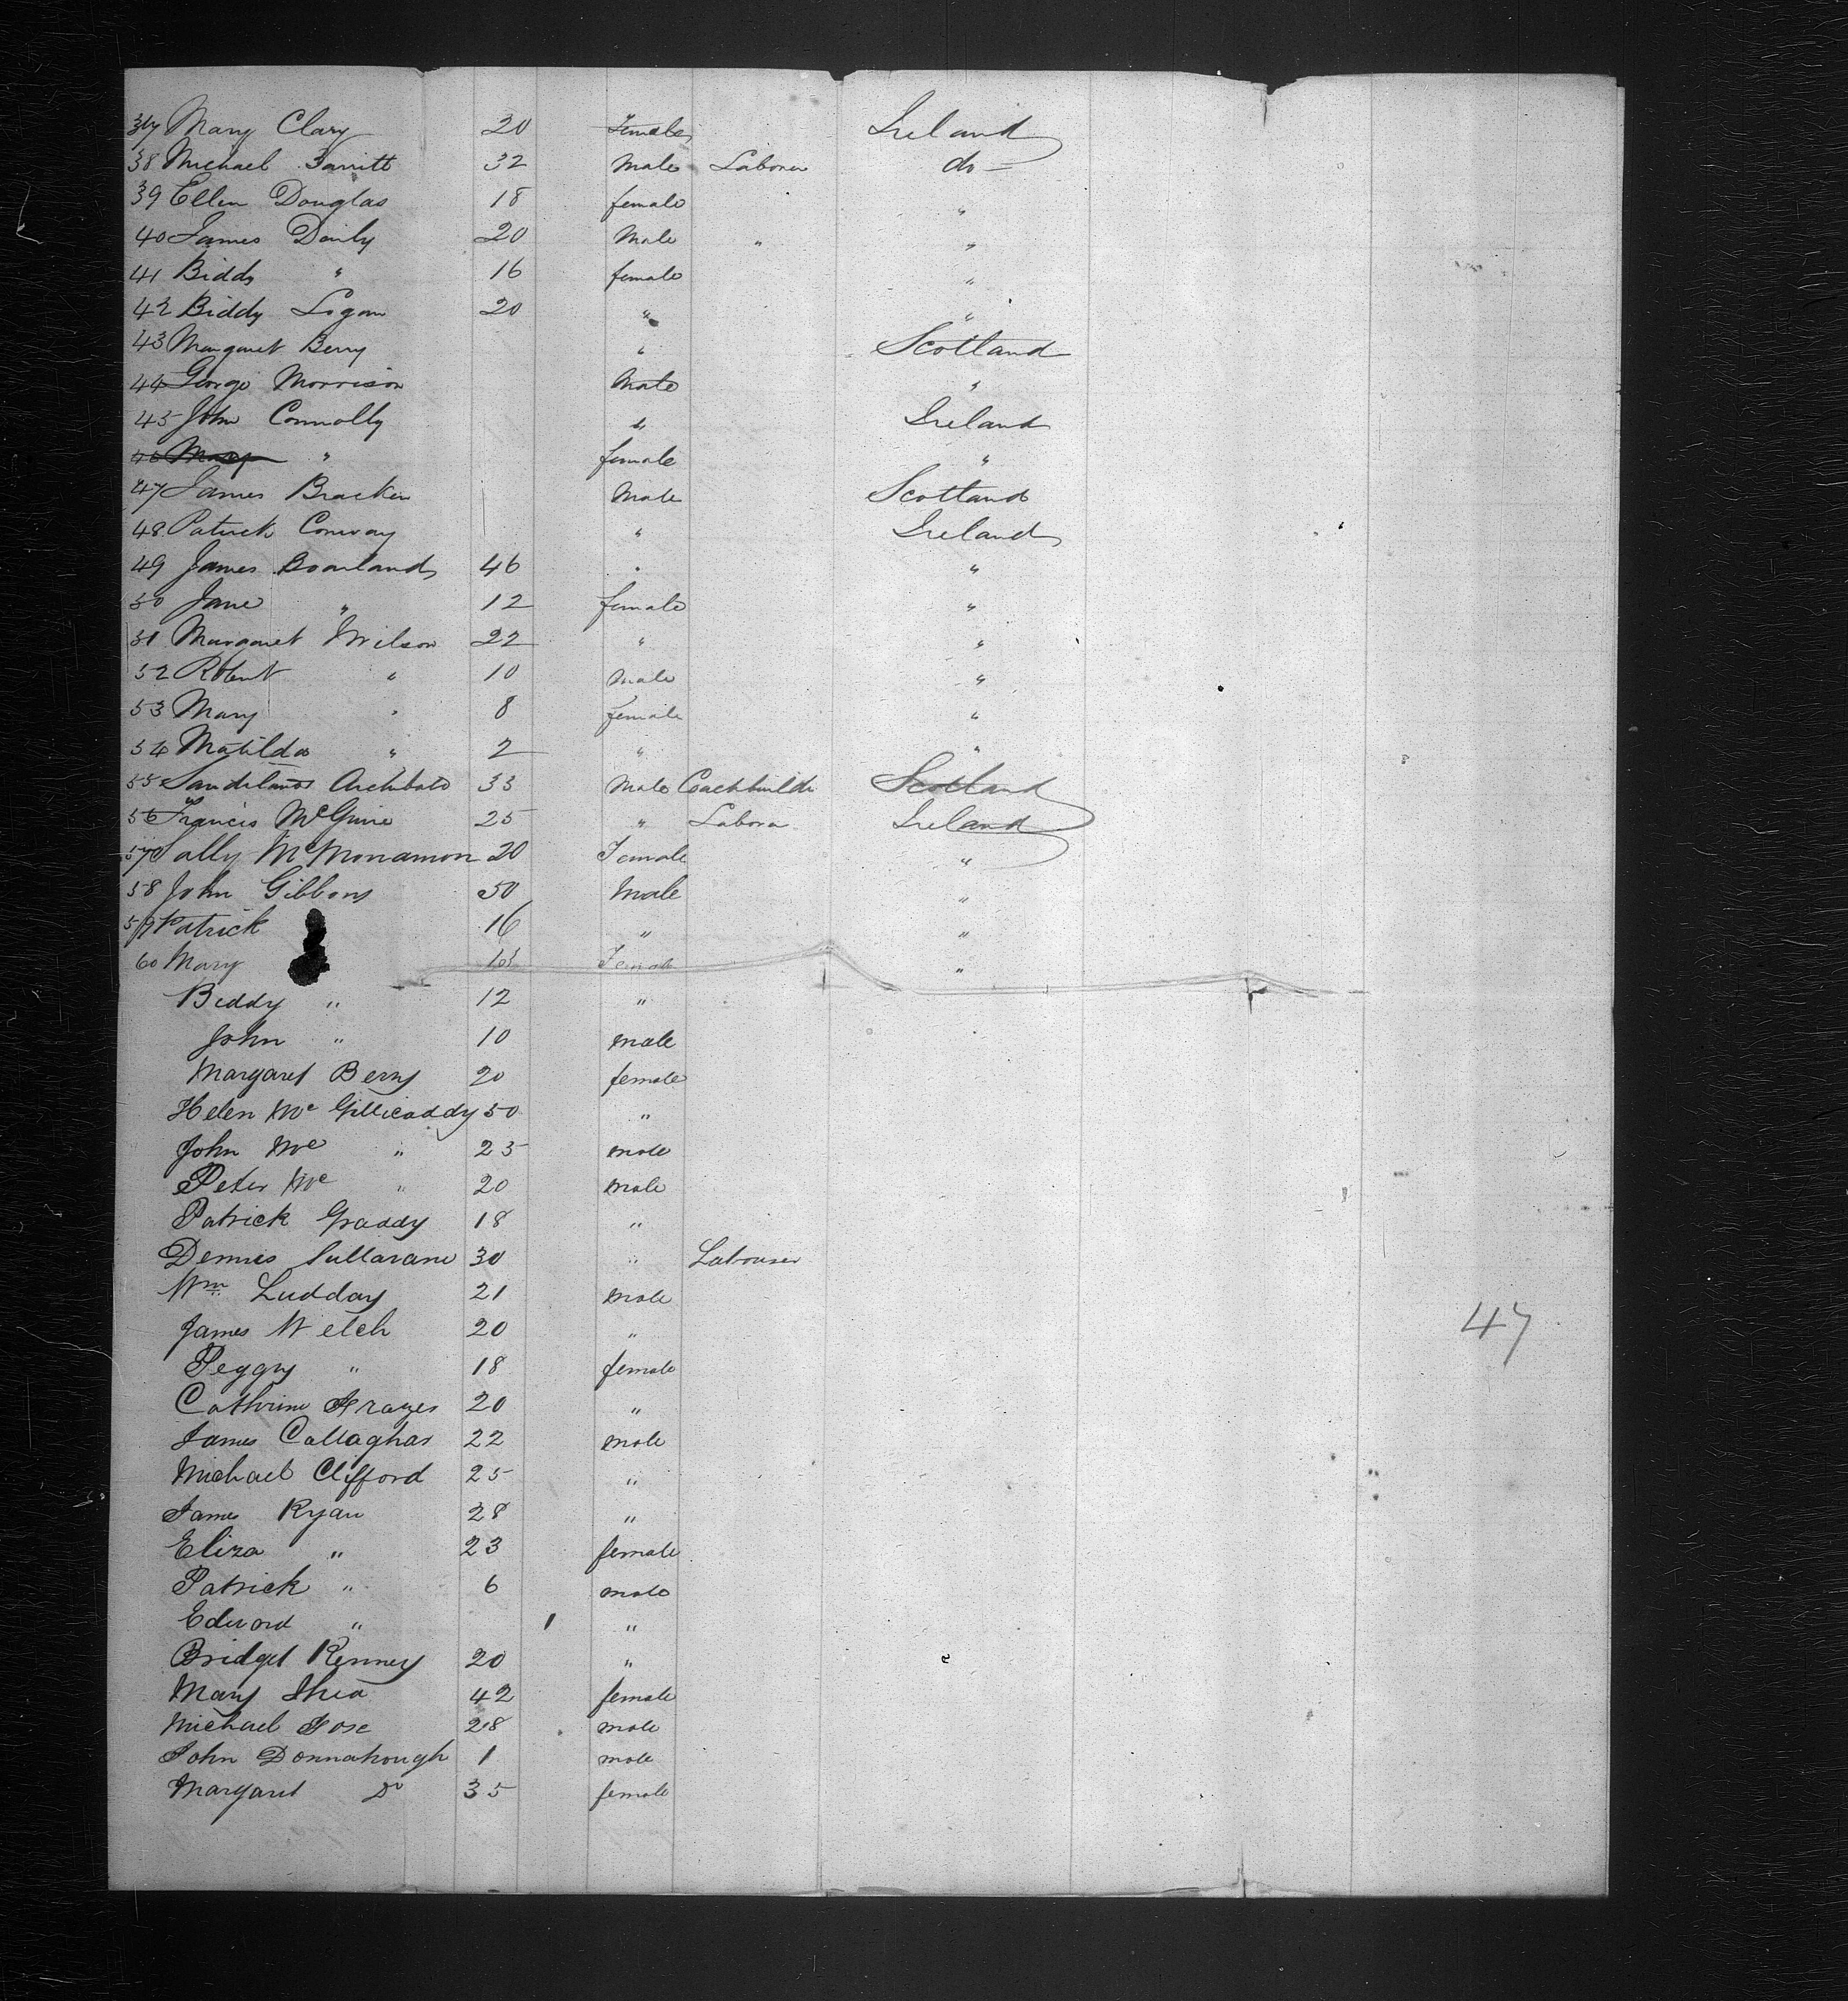 37 Mary Clary 20 Female Ireland
38 Michael Barritt 32 Male Laborer do
39 Ellen Douglas 18 female "
40 James Daily 20 Male " "
41 Biddy " 16 female "
42 Biddy Logan 20 " "
43 Margaret Berry " Scotland
44 George Morrison Male "
45 John Connolly " Ireland
46 Mary " female "
47 James Bracken Male Scotland
48 Patrick Conway " Ireland
49 James Boarland 46 " "
50 Jane " 12 female "
51 Margaret Wilson 22 " "
52 Robert " 10 Male "
53 Mary " 8 female "
54 Matilda " 2 " "
55 Sandilands Archibald 33 Male Coachbuilder Scotland
56 Francis McGuire 25 " Labora Ireland
57 Sally McMonamon 20 Female "
58 John Gibbons 50 Male "
59 Patrick 16 " "
60 Mary Female "
Biddy " 12 "
John " 10 male
Margaret Berry 20 female
Helen Mc Gillicaddy 50 "
John Mc " 25 male
Peter Mc " 20 male
Patrick Graddy 18 "
Dennis Sullavane 30 " Labourer
Wm Ludday 21 male
James Welch 20 "
Peggy " 18 female
Cathrine Frazer 20 "
James Callaghar 22 male
Michael Clifford 25 "
James Ryan 28 "
Eliza " 23 female
Patrick " 6 male
Edward " 1 "
Bridget Kenney 20 "
Mary Shea 42 female
Michael Fose 28 male
John Donnahough 1 male
Margaret Do 35 female
47